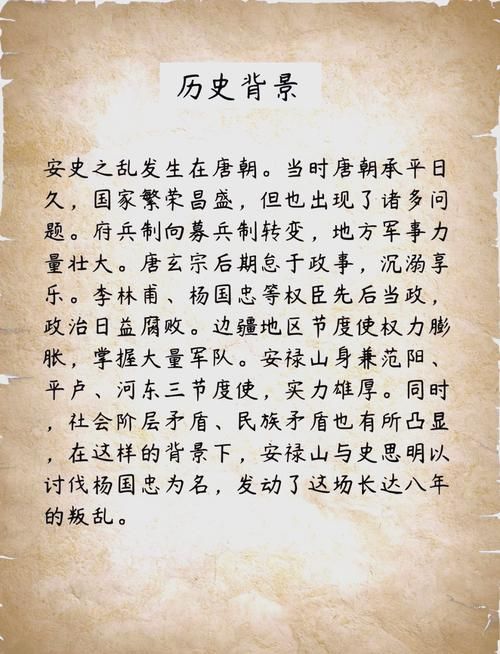 历史背景
安史之乱发生在唐朝。当时唐朝承平日
久，国家繁荣昌盛，但也出现了诸多问
题。府兵制向募兵制转变，地方军事力
量壮大。唐玄宗后期怠于政事，沉溺享
乐。李林甫、杨国忠等权臣先后当政，
政治日益腐败。边疆地区节度使权力膨
胀，掌握大量军队。安禄山身兼范阳、
平卢、河东三节度使，实力雄厚。同时
，社会阶层矛盾、民族矛盾也有所凸显
，在这样的背景下，安禄山与史思明以
讨伐杨国忠为名，发动了这场长达八年
的叛乱。